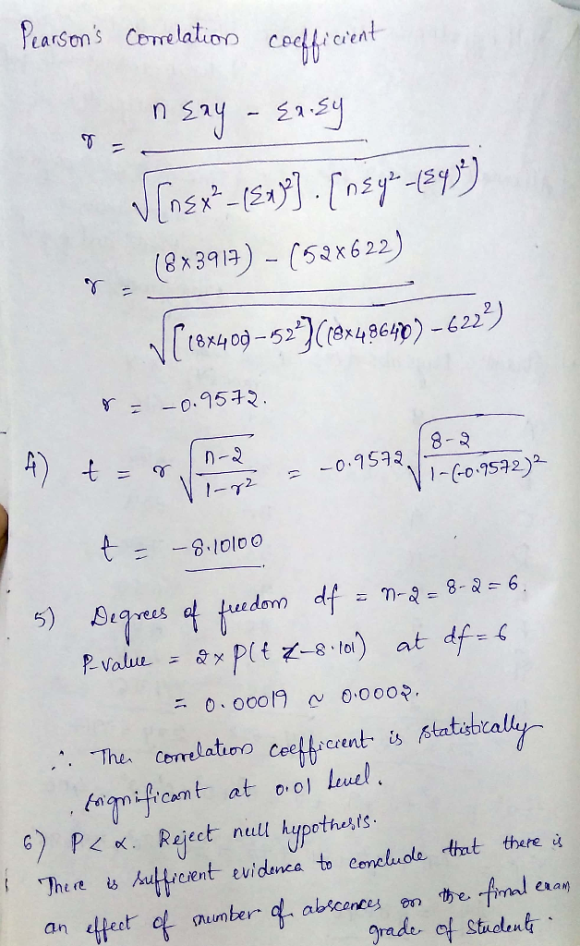 Pearson's Correlation coefficient
r = n Σxy - Σx.Σy / √[nΣx² - (Σx)²] . [nΣy² - (Σy)²)
r = (8x3917) - (52x622) / √[(8x400) - 52²]((8x48640) - 622²)
r = -0.9572.
4) t = r √n-2 / 1-r² = -0.9572 √8-2 / 1-(-0.9572)²
t = -8.10100
5) Degrees of freedom df = n-2 = 8-2 = 6.
P-value = 2x P(t < -8.101) at df = 6
= 0.00019 ~ 0.0002.
∴ The correlation coefficient is statistically
significant at 0.01 level.
6) P < α. Reject null hypothesis.
There is sufficient evidence to conclude that there is
an effect of number of abscences on the final exam
grade of Students.